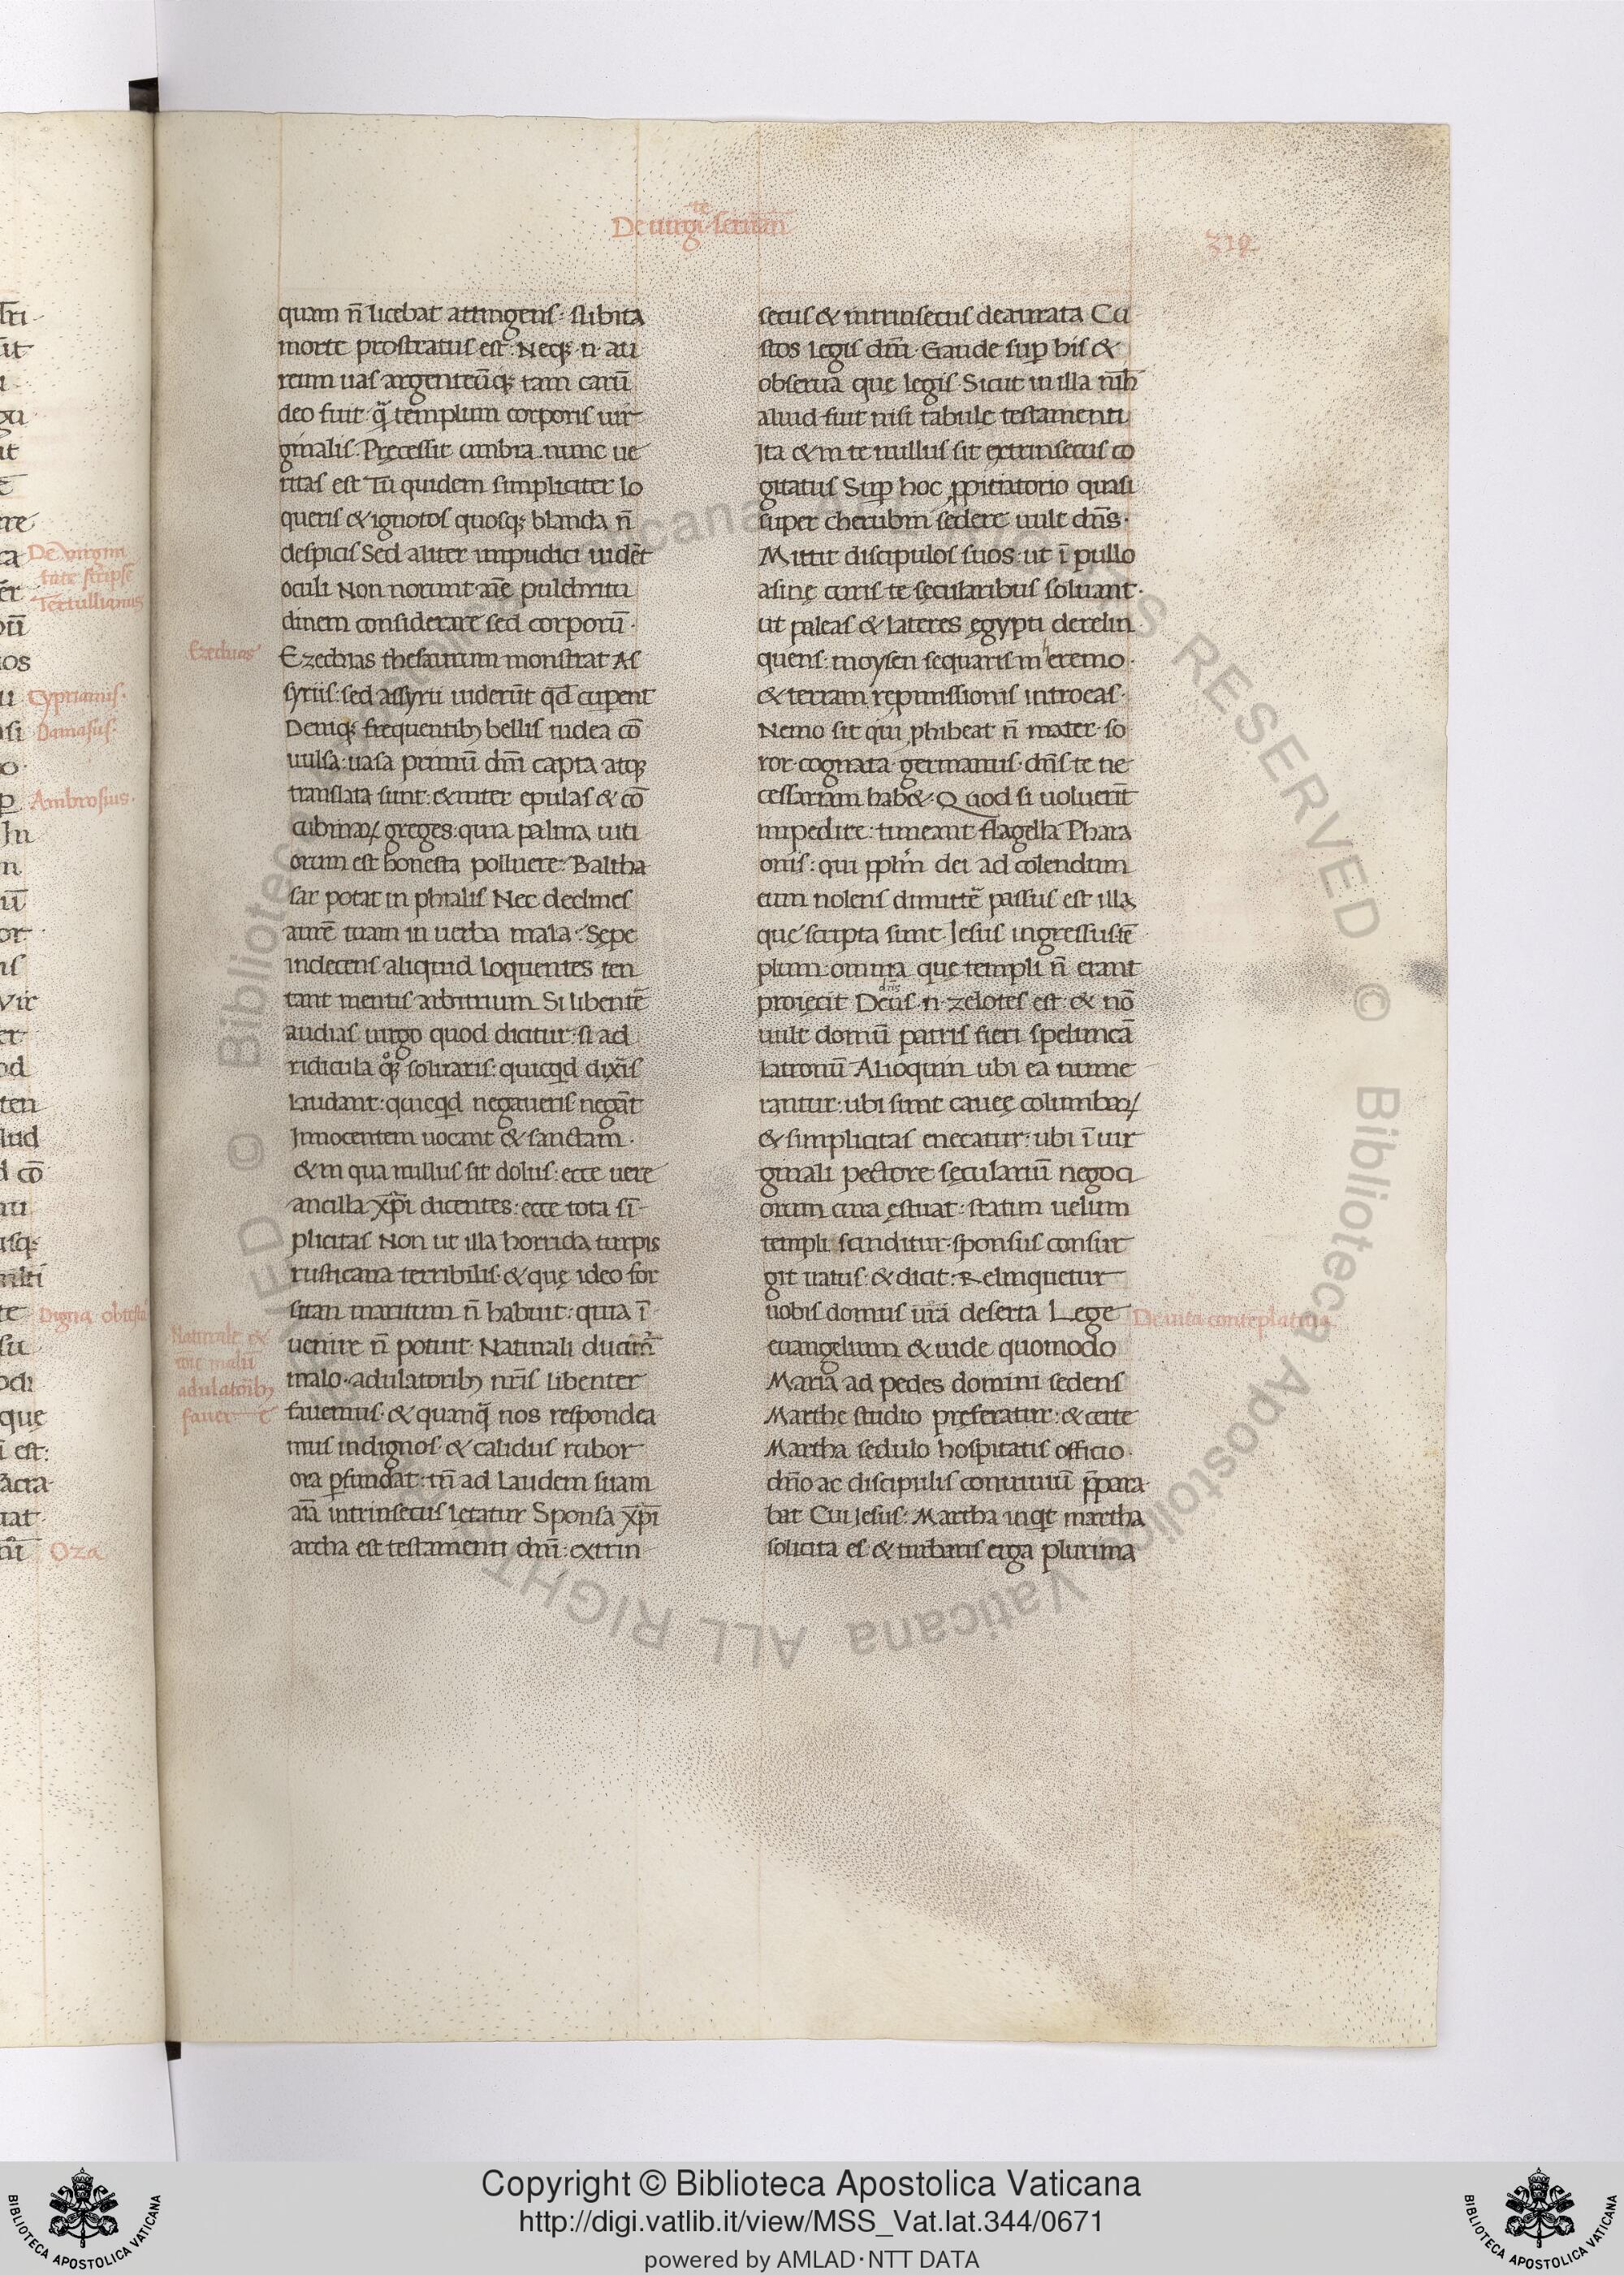 De uirgīte seruan̄
319
quam n̄ licebat attingens· subita
morte prostratus est. Neq; n̄· au
reum uas argenteūq; tam carū
deo fuit· q̄ templum corporis uir
ginalis. Pręcessit umbra· nunc ue
ritas est Tu quidem simpliciter lo
queris & ignotos quosq; blanda n̄
despicis Sed aliter impudici uidēt
oculi Non norunt aīe pulchritu
dinem considerare sed corporū·
Ezechias
Ezechias thesaurum monstrat As
syriis: sed assyrii uiderūt qd̄ cuperent
Deniq; frequentib; bellis iudea cō
uulsa: uasa primū dn̄i capta atq;
translata sunt: & inter epulas & cō
cubinaꝝ greges: quia palma uiti
orum est honesta polluere: Baltha
sar potat in phialis Nec declines
aurē tuam in uerba mala: Sępe
indecens aliquid loquentes ten
tant mentis arbitrium Si libentē
audias uirgo quod dicitur: si ad
ridicula q̊q; soluaris: quicqd dix̄is
laudant: quicqd negaueris negāt
Innocentem uocant & sanctam·
& in qua nullus sit dolus: ecce uere
ancilla xp̄i dicentes: ecce tota sī
plicitas Non ut illa horrida turpis
rusticana terribilis· & quę ideo for
sitan maritum n̄ habuit: quia ī
uenire n̄ potuit· Naturali ducim̄
malo· adulatorib; nr̄is libenter
fauemus· & quanq̄ nos respondea
mus indignos· & calidus rubor
ora ꝑfundat: tn̄ ad laudem suam
aīa intrinsecus lętatur Sponsa xp̄i
archa est testamenti dn̄i: extrin
Naturale
malū
adulatorib;
fauere
secus & intrinsecus deaurata Cu
stos legis dn̄i· Gaude suꝑ his &
obserua quę legis· Sicut in illa nih̄
aliud fuit nisi tabulę testamenti
Ita & in te nullus sit extrinsecus co
gitatus Suꝑ hoc ꝓpitiatorio quasi
super cherubin sedere uult dn̄s·
Mittit discipulos suos· ut ī pullo
asinę curis te sęcularibus soluant·
ut paleas & lateres ęgypti derelin
quens: moysen sequaris in heremo·
& terram repromissionis introeas·
Nemo sit qui ꝓhibeat n̄ mater· so
ror· cognata· germanus· dn̄s te ne
cessariam hab&· Quod si uoluerīt
impedire: timeant flagella Phara
onis: qui ppl̄m dei ad colendum
eum nolens dimittē passus est illa
quę scripta sunt· Iesus ingressus tē
plum· omnia quę templi n̄ erant
proiecit Deus dn̄s n̄ zelotes est· & nō
uult domū patris fieri speluncā
latronū Alioquin ubi ea nume
rantur: ubi sunt caueę columbaꝝ
& simplicitas enecatur· ubi ī uir
ginali pectore sęculariū negoci
orum cura ęstuat: statim uelum
templi scinditur· sponsus consur
git iratus· & dicit: Relinquetur
uobis domus ur̄a deserta Lege
De uita contēplatiua
euangelium & uide quomodo
Maria ad pedes domini sedens
Marthę studio preferatur: & certe
Martha sedulo hospitatis officio·
dn̄o ac discipulis conuiuiū p̄para
bat Cui Iesus: Martha inqt martha
solicita es & turbaris erga plurima
De virgini
tate scripsē
Tertullianus
Cyprianus·
Damasus:
Ambrosius·
Oza
© Biblioteca Apostolica Vaticana ALL RIGHTS RESERVED © Biblioteca Apostolica Vaticana ALL RIGHTS RESERVED
Copyright © Biblioteca Apostolica Vaticana
http://digi.vatlib.it/view/MSS_Vat.lat.344/0671
powered by AMLAD·NTT DATA
BIBLIOTECA APOSTOLICA VATICANA
BIBLIOTECA APOSTOLICA VATICANA